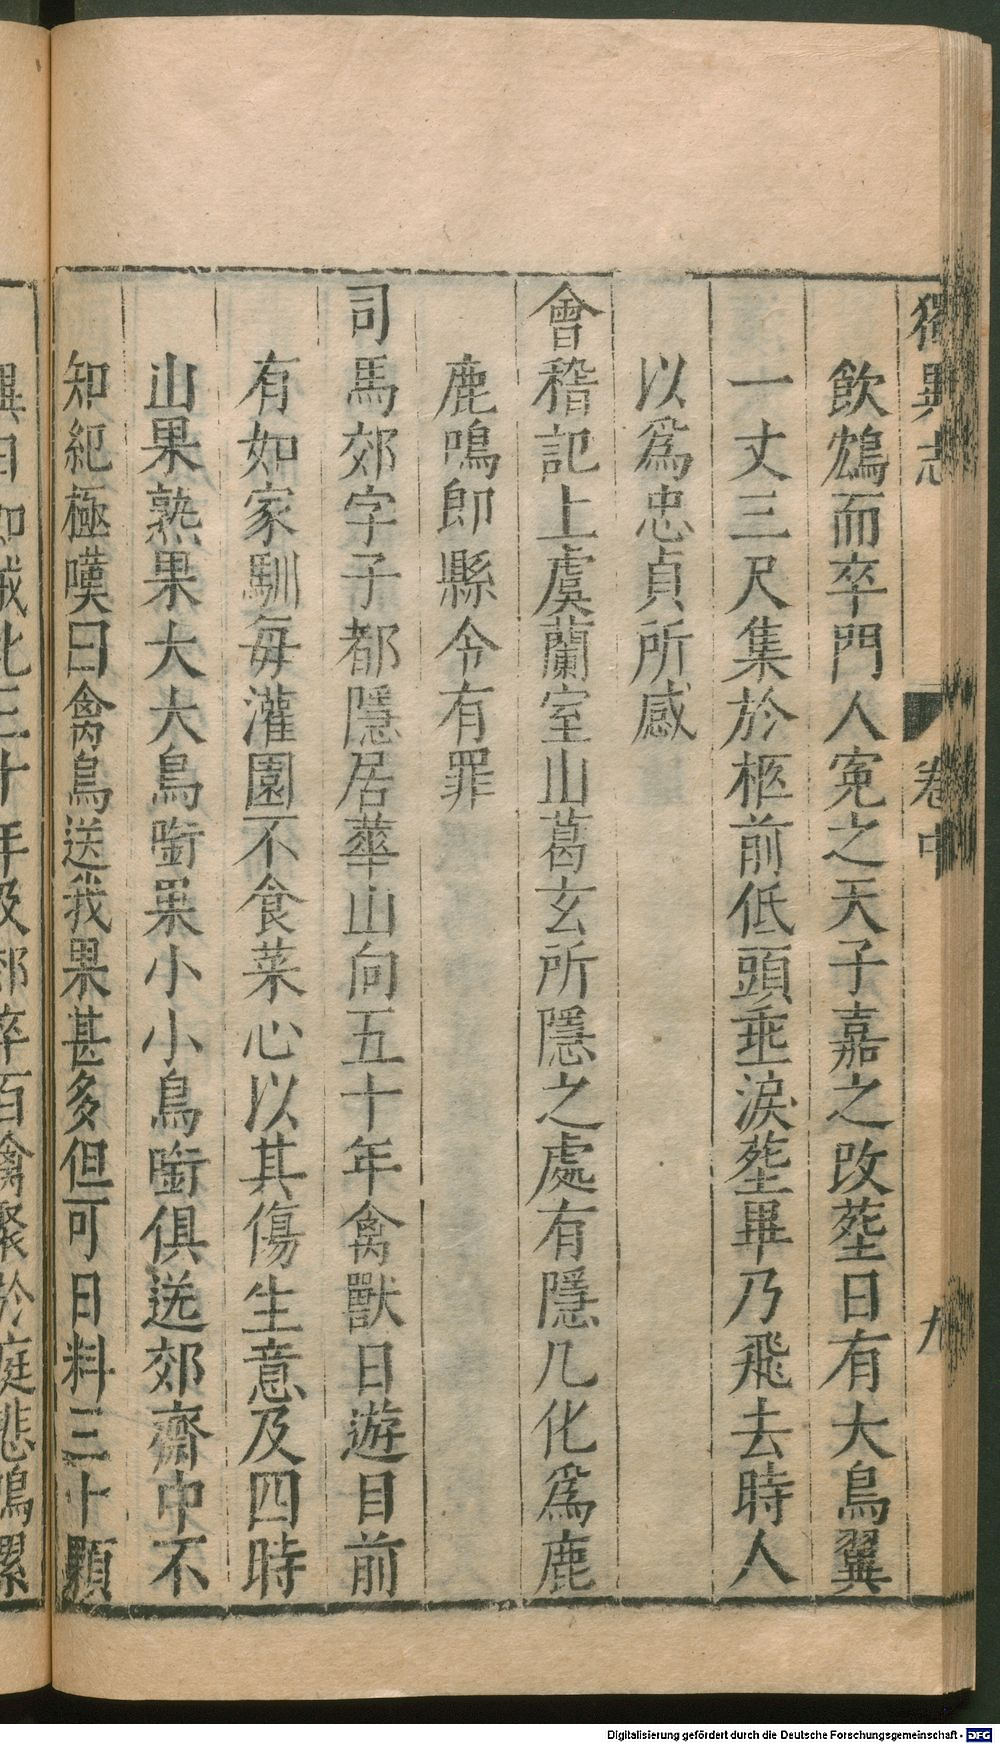 獨異志
卷中
九
飲鴆而卒門人寃之天子嘉之改塟日有大鳥翼
一丈三尺集於柩前低頭垂淚塟畢乃飛去時人
以爲忠貞所感
會稽記上虞蘭室山葛玄所隱之處有隱几化爲鹿
鹿鳴即縣令有罪
司馬郊字子都隱居華山向五十年禽獸日遊目前
有如家馴每灌園不食菜心以其傷生意及四時
山果熟果大大鳥銜果小小鳥銜俱送郊齋中不
知紀極嘆曰禽鳥送我果甚多但可日料三十顆
年及郊卒百禽聚於庭悲鳴累
Digitalisierung gefördert durch die Deutsche Forschungsgemeinschaft - DFG